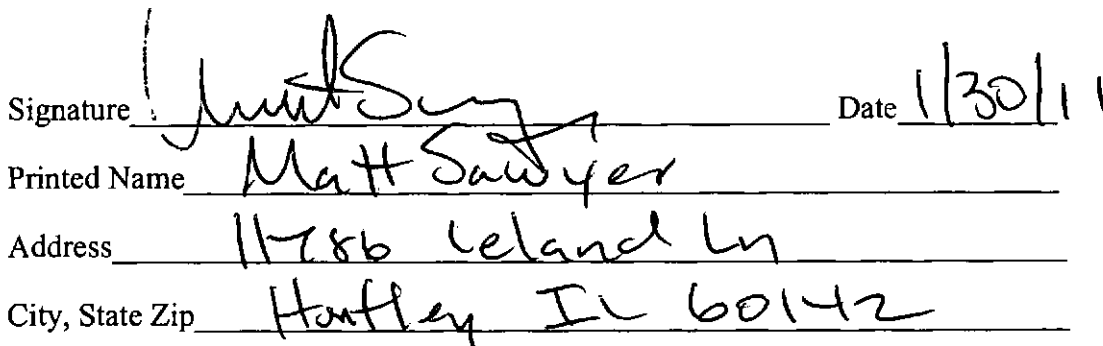 Signature Date 1/30/11
Printed Name Matt Sawyer
Address 11786 Leland Ln
City, State Zip Huntley IL 60142